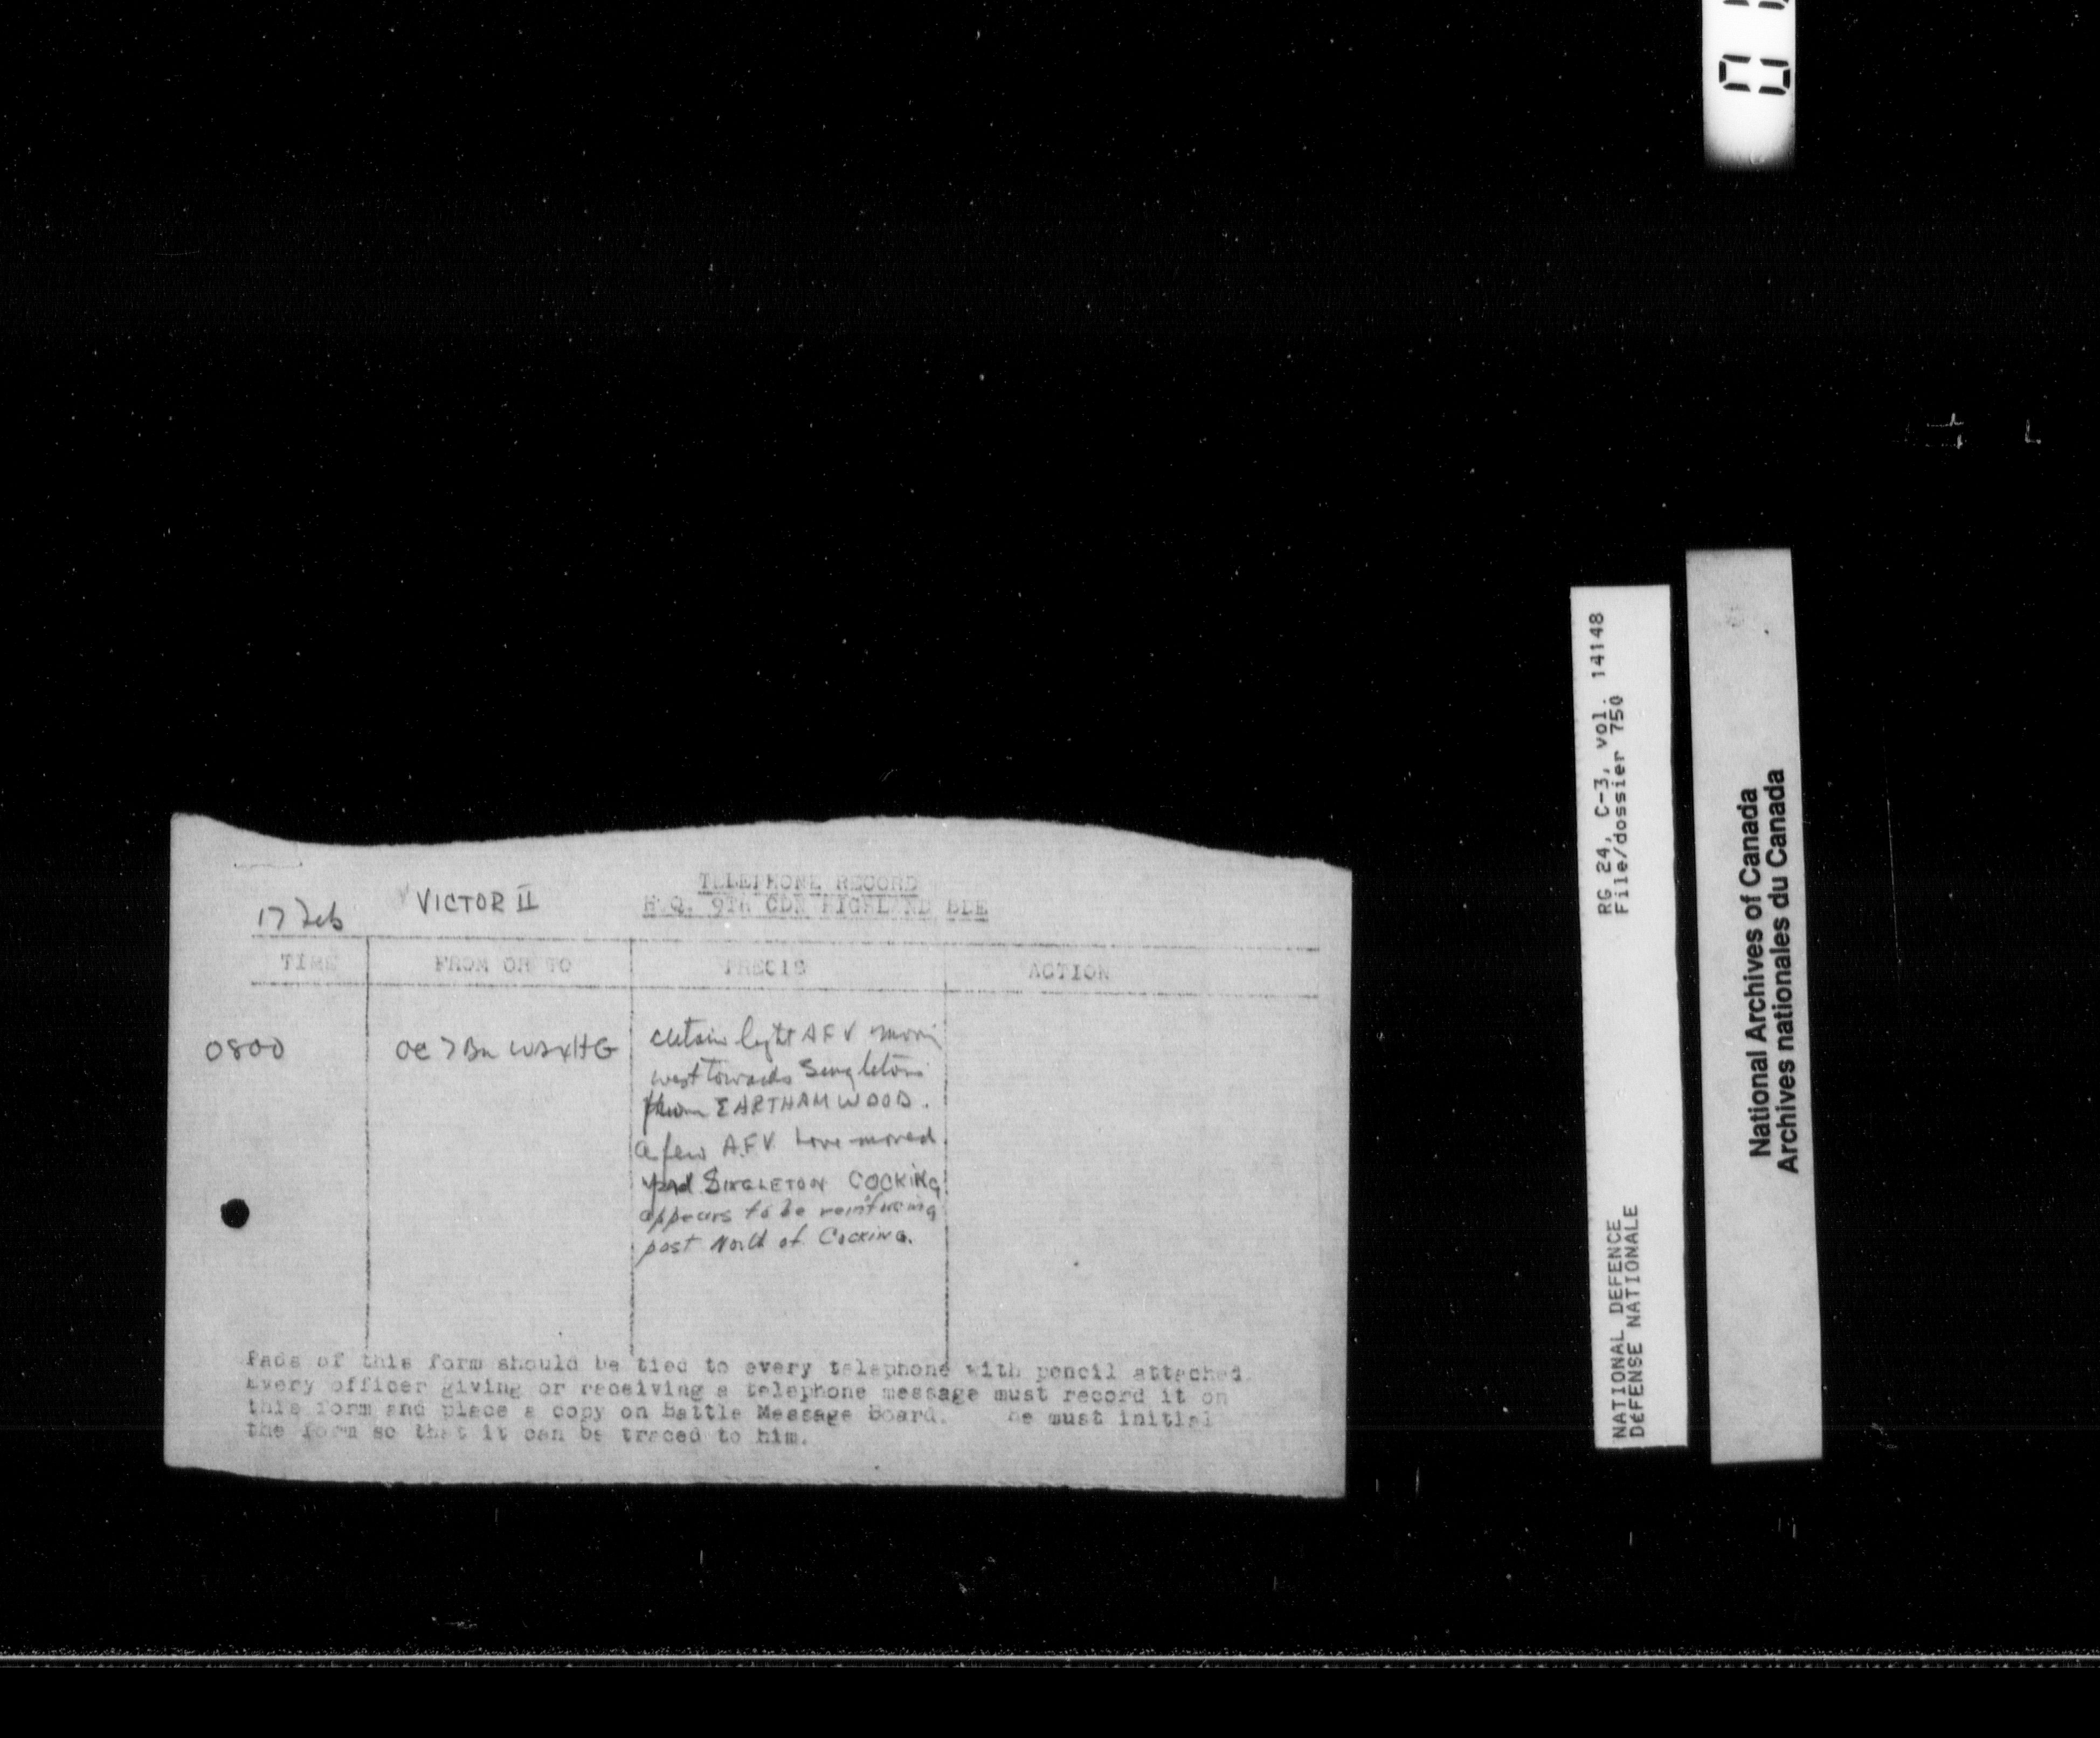 17 Feb
VICTOR II
TELEPHONE RECORD
H.Q. 9TH CDN HIGHLAND BDE
TIME
FROM OR TO
PRECIS
ACTION
0800
OC 7 Bn WSxHG
certain light AFV movin
west towards Singleton
from EARTHAM WOOD.
a few AFV have moved
SINGLETON COCKING
appears to be reinforcing
post North of Cocking.
Pads of this form should be tied to every telephone with pencil attached.
Every officer giving or receiving a telephone message must record it on
this form and place a copy on Battle Message Board. He must initial
the form so that it can be traced to him.
RG 24, C-3, vol. 14148
File/dossier 750
NATIONAL DEFENCE
DéFENSE NATIONALE
National Archives of Canada
Archives nationales du Canada